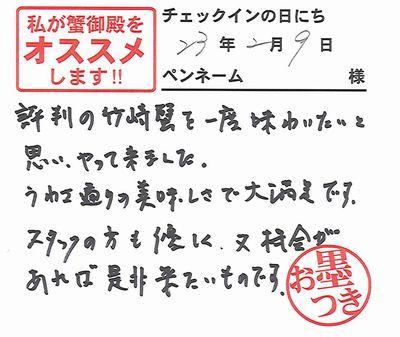 私が蟹御殿を
オススメ
します!!
チェックインの日にち
23年 2月 9日
ペンネーム 様
評判の竹崎蟹を一度味わいたいと
思い、やって来ました。
うわさ通りの美味しさで大満足です。
スタッフの方も優しく、又機会が
あれば是非来たいものです。
お墨つき